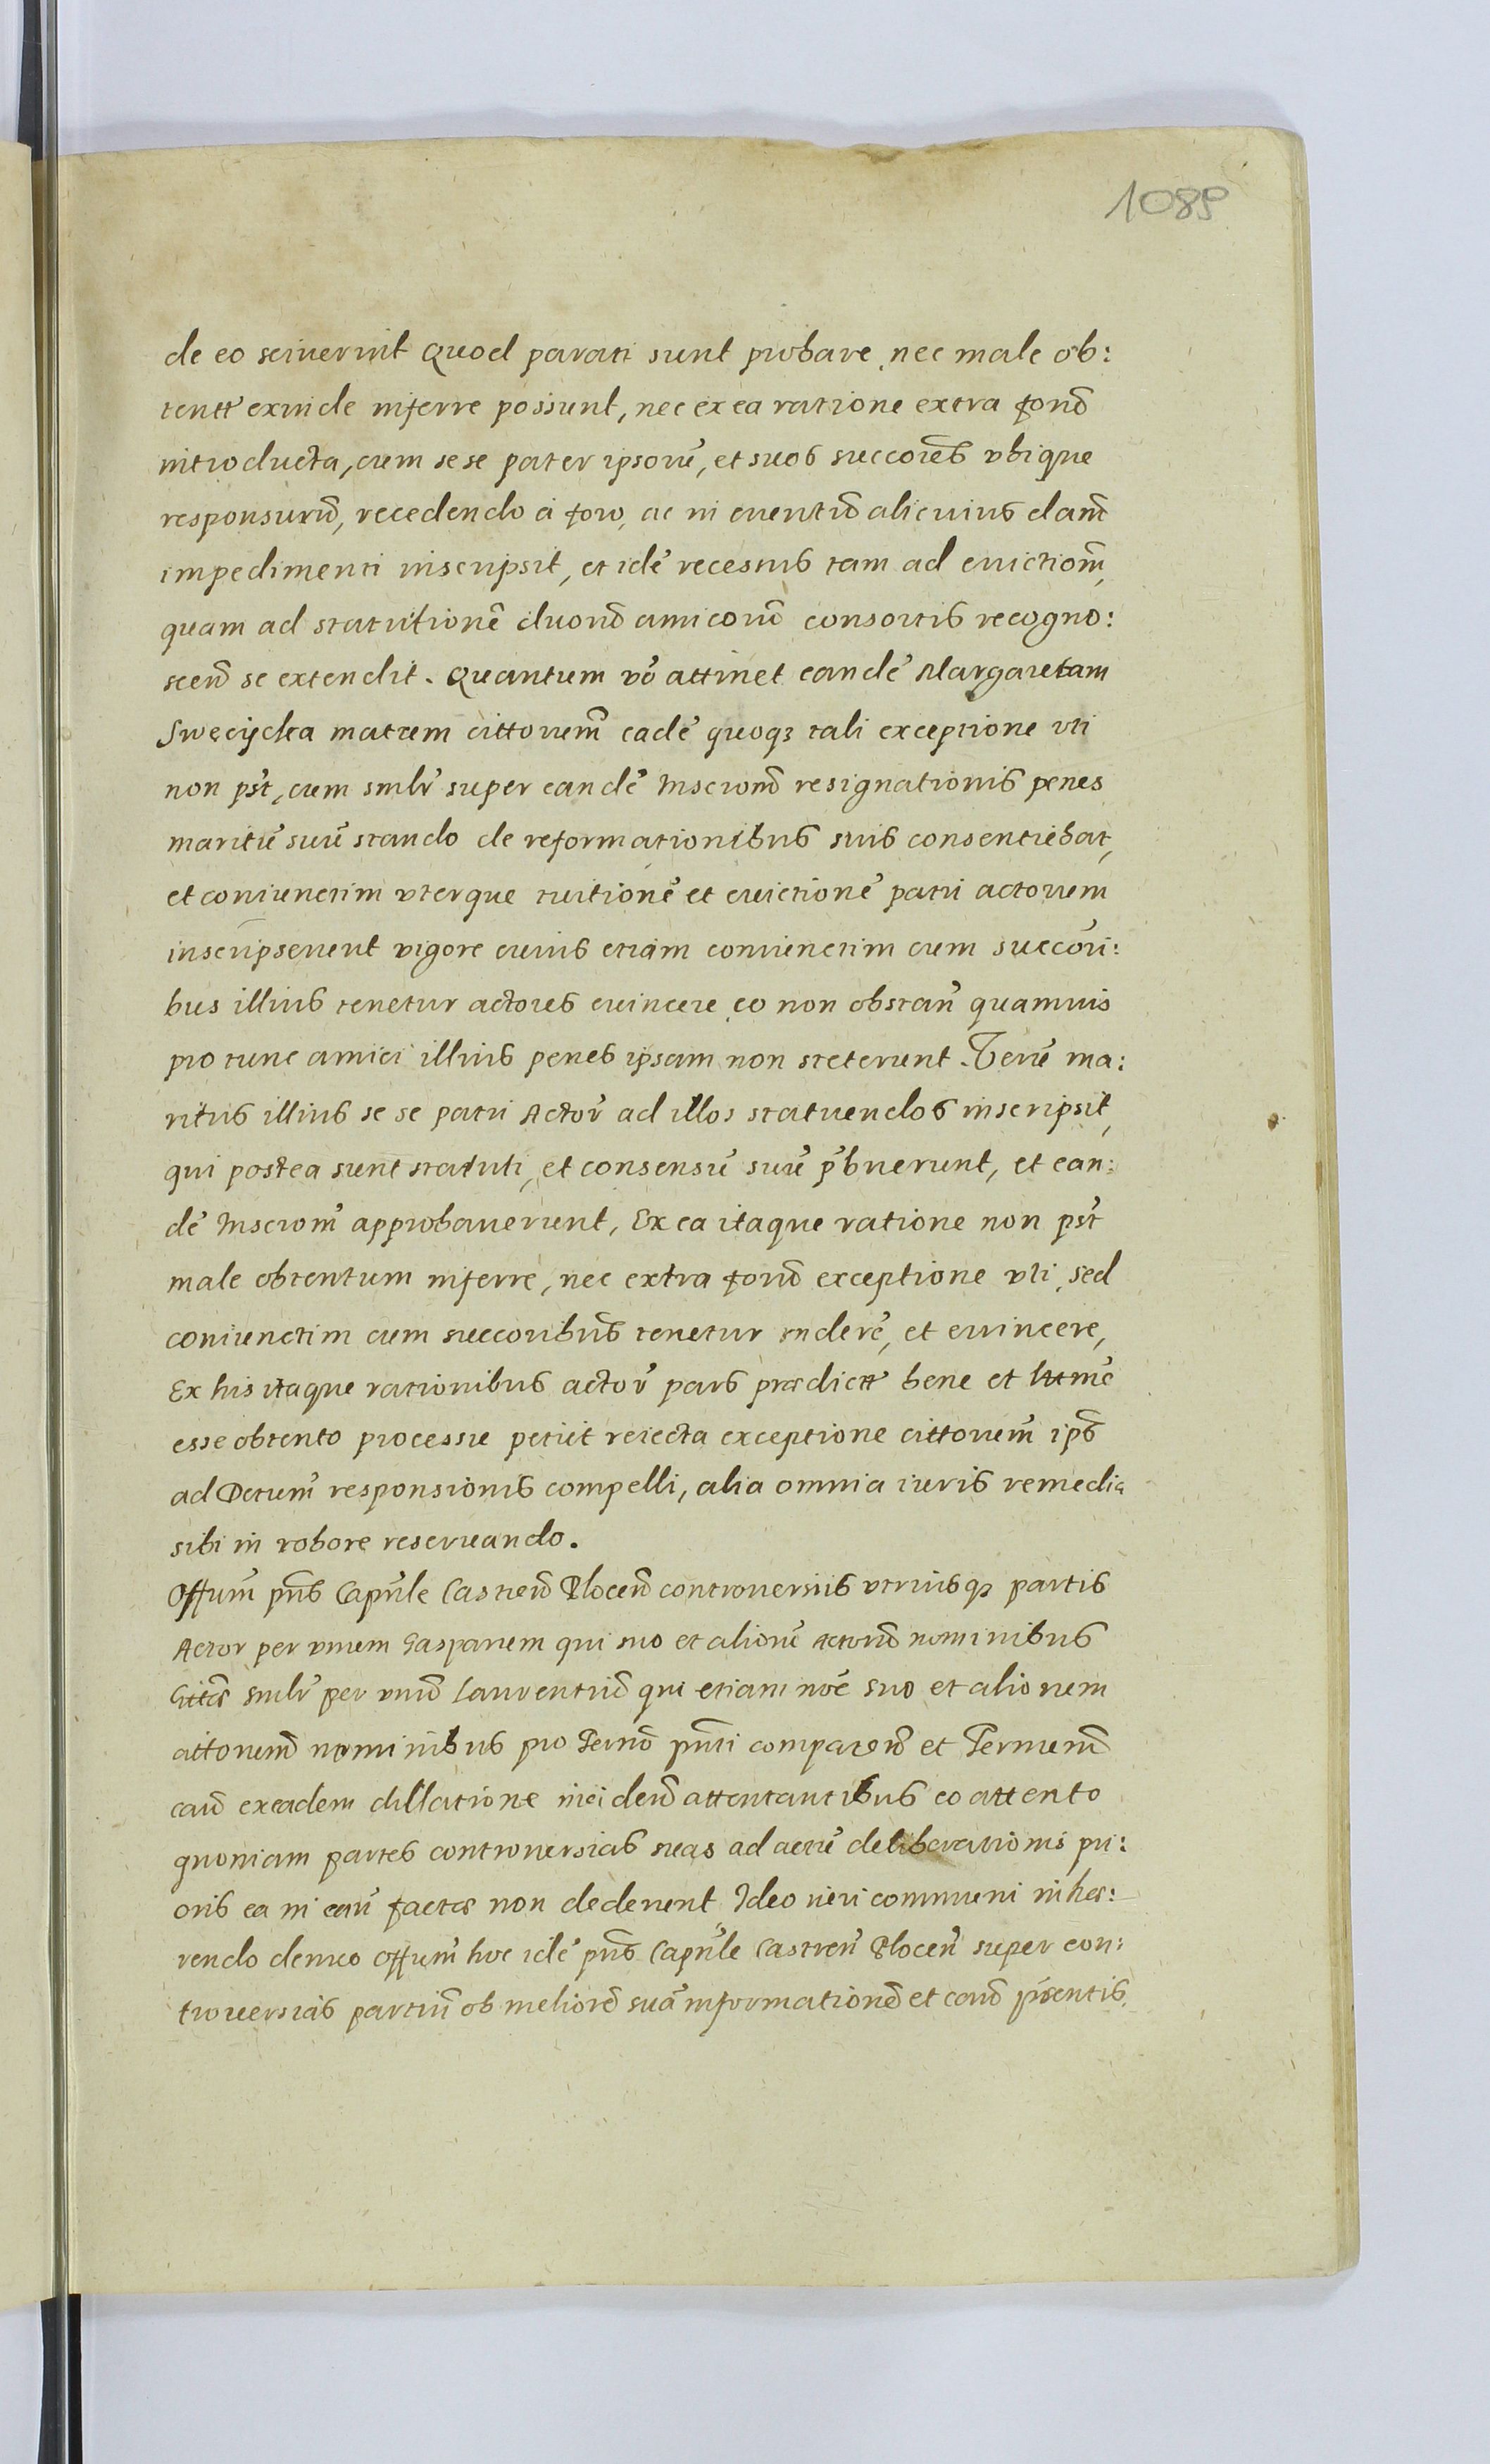 1089
de eo sciuerint Quod parati sunt probare, nec male ob:
tentt exinde inferre possunt, nec ex ea ratione extra forũ
introducta, cum sese pater ipsorũ, et suos succores̃ vbique
responsurũ, recedendo á foro, ac in euentũ alicuius dam̃
impedimenti inscripsit, et idẽ recessus tam ad euictiom̃,
quam ad statuitionẽ duorũ amicorũ consortis recogno:
scen̄ se extendit. Quantum vō attinet eandẽ Margaretam
Swecijcka matrem cittorum̃ eadẽ quoqȝ tali exceptione vti
non pst̃, cum smlr̃ super eandẽ Inscrom̃ resignationis penes
maritũ suũ stando de reformationibus suis consentiebat,
et coniunctim vterque tuitionẽ et euictionẽ patri actorum
inscripserunt vigore cuius etiam coniunctim cum succori:
bus illius tenetur actores euincere eo non obstañ quamuis
pro tunc amici illius penes ipsam non steterunt. Verũ ma:
ritus illius se se patri Actor̃ ad illos statuendos inscripsit,
qui postea sunt statuti, et consensũ suũ p̃buerunt, et ean:
dẽ Inscrom̃ approbauerunt, Ex ea itaque ratione non pst̃
male obtentum inferre, nec extra forũ exceptione vti, sed
coniunctim cum succoribus̃ tenetur rndere̅, et euincere,
Ex his itaque rationibus actor̃ pars prædictt bene et lttmẽ
esse obtento processu petiit reiecta exceptione cittorum̃ ips̃
ad Dcrum̃ responsionis compelli, alia omnia iuris remedia
sibi in robore reseruando.
Offum̃ pns̃ Capnlẽ Castreñ Plocen̄ controuersiis vtriusqȝ partis
Actor per vnum Gasparum qui suo et aliorũ actorũ nominibus
smlr̃ per vnũ Laurentiũ qui etiam noẽ suo et aliorum
cittorum̃ nominibus pro Termō pnti compareñ et Termum̃
cauñ ex eadem dillatione inciden̄ attentantibus eo attento
quoniam partes controuersias suas ad actũ deliberationis pri:
oris ea in cauñ factas non dederunt, Ideo iuri communi inhæ:
rendo denuo Offum̃ hoc idẽ pns̃ Capnlẽ Castreñ Ploceñ super con:
trouersias partiũ ob meliorẽ suã informationẽ et cauñ pr̃sentis